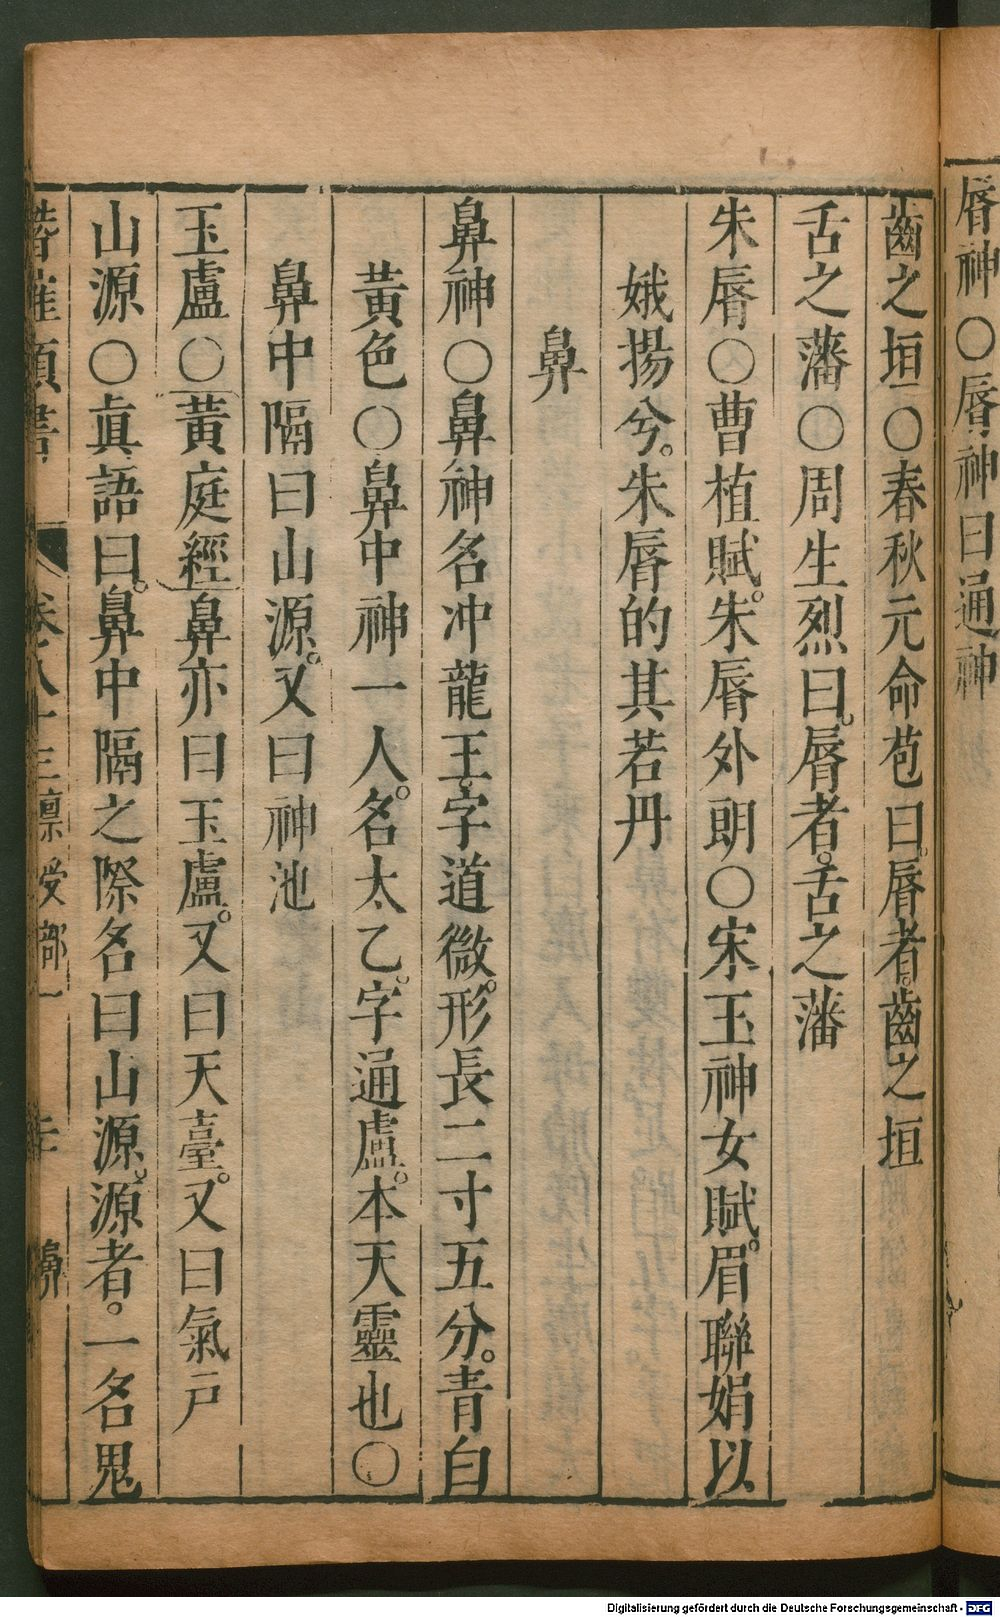 脣神〇脣神曰通神
齒之垣〇春秋元命苞曰。脣者。齒之垣
舌之藩〇周生烈曰。脣者。舌之藩
朱脣〇曹植賦。朱脣外朗〇宋玉神女賦。眉聯娟以
娥揚兮。朱脣的其若丹
鼻
鼻神〇鼻神名冲龍王。字道微。形長二寸五分。青白
黃色〇鼻中神一人。名太乙。字通盧。本天靈也〇
鼻中隔曰山源。又曰神池
玉盧〇黃庭經鼻亦曰玉盧。又曰天臺。又曰氣戸
山源〇眞語曰。鼻中隔之際名曰山源。源者。一名鬼
卷八十三稟受部一
Digitalisierung gefördert durch die Deutsche Forschungsgemeinschaft - DFG